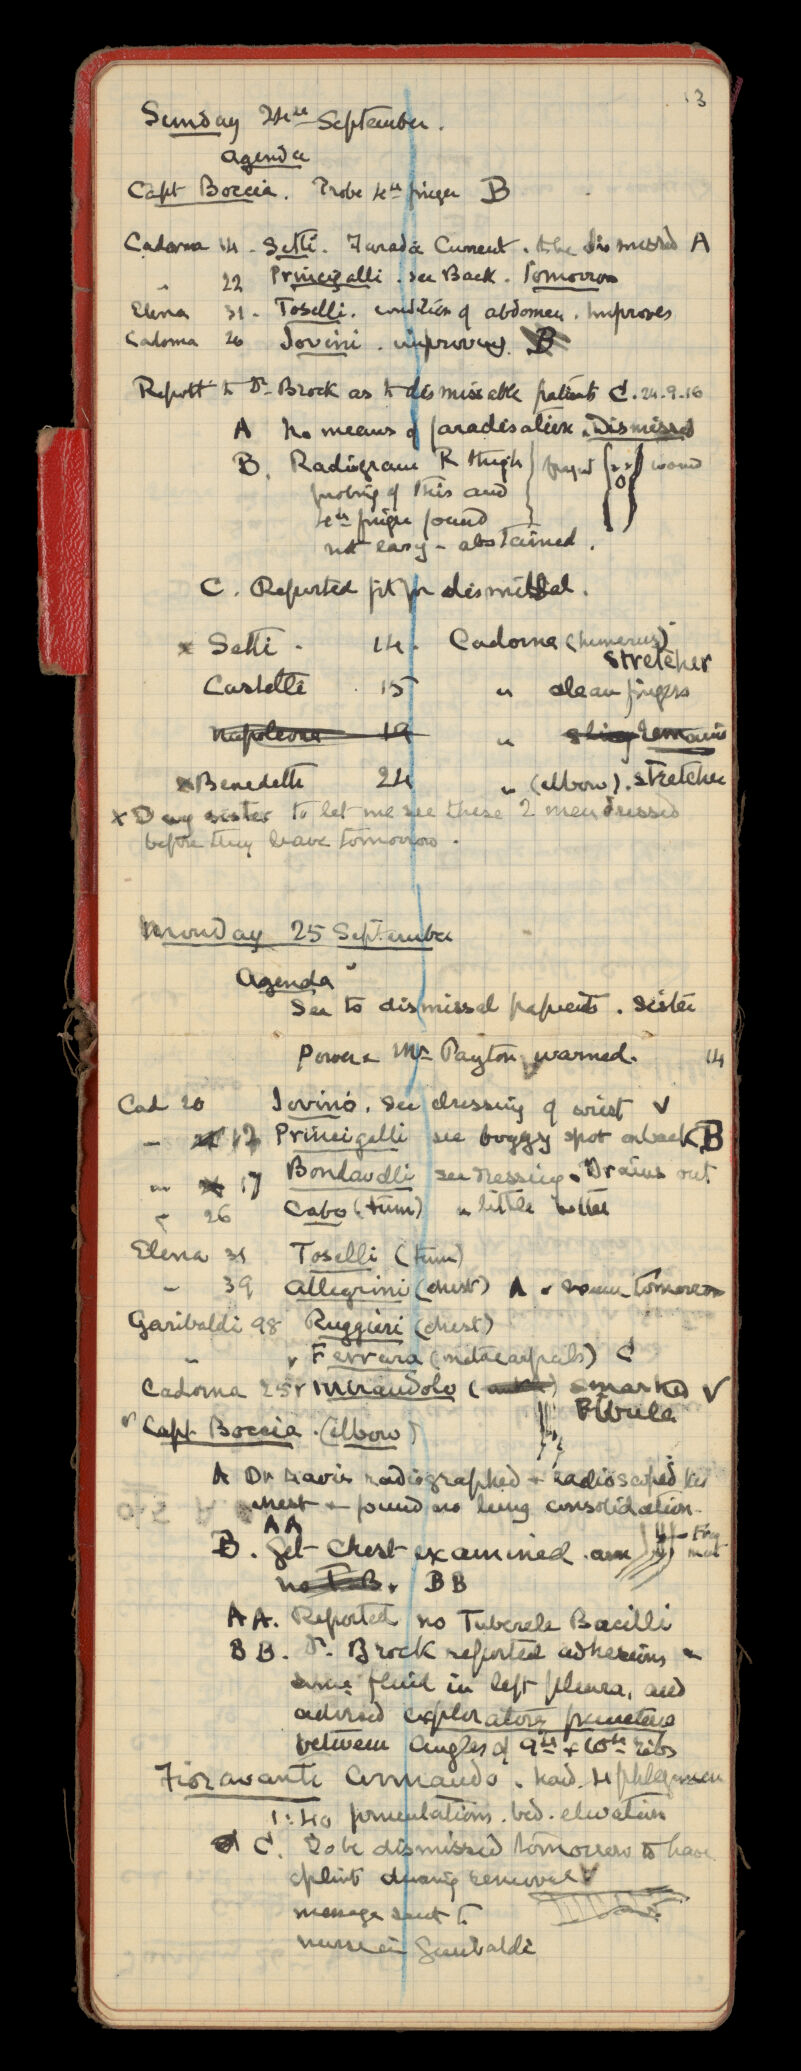 13
Sunday 24th September.
Agenda
Capt Boccia. Probe 4th finger B
Cadorna 14 - Setti. Faradic Current. to be dismissed A
" 22 Principalli. see Back. Tomorrow
Elena 31 - Toselli. condition of abdomen. Improves
Cadorna 20 Iovini. improving. B
Report to Dr Brock as to dismissable patients C. 24.9.16
A No means of faradisation. Dismissed
B. Radiogram R thigh
probing of this and wound
4th finger found
not easy - abstained.
C. Reported fit for dismissal.
x Setti - 14. Cadorna (humerus)
Stretcher
Castelli 15 " clean fingers
Napoleone 19 " sling remains
x Benedetti 24 " (elbow). stretcher
x Day sister to let me see these 2 men dressed
before they leave tomorrow.
Monday 25 September
Agenda
See to dismissal papers. Sister
Power & Mr Payton warned. 14
Cad 20 Iovino. see dressing of wrist V
" 17 Principalli see boggy spot on back B
" 17 see dressing. Drains out
" 26 Cabo (tum) a little better
Elena 31 Toselli (tum)
" 39 Allegrini (chest) A tomorrow
Garibaldi 98 Ruggieri (chest)
" " Ferrara (metacarpals) C
Cadorna 25 Mirandolo ( ) V
Fibula
Capt. Boccia. (elbow)
A Dr radiographed & radioscoped his
chest & found no lung consolidation.
AA
B. Get Chest examined. am
no T.B. BB
AA. Reported no Tubercle Bacilli
BB. Dr. Brock reported adhesions &
some fluid in left pleura, and
advised exploratory puncture
between angles of 9th & 10th ribs
Fioravanti Armando. had phlegmon
1:40 fomentations. bed. elevation
C. To be dismissed tomorrow to have
splint during removal V
message sent to
nurse in Garibaldi